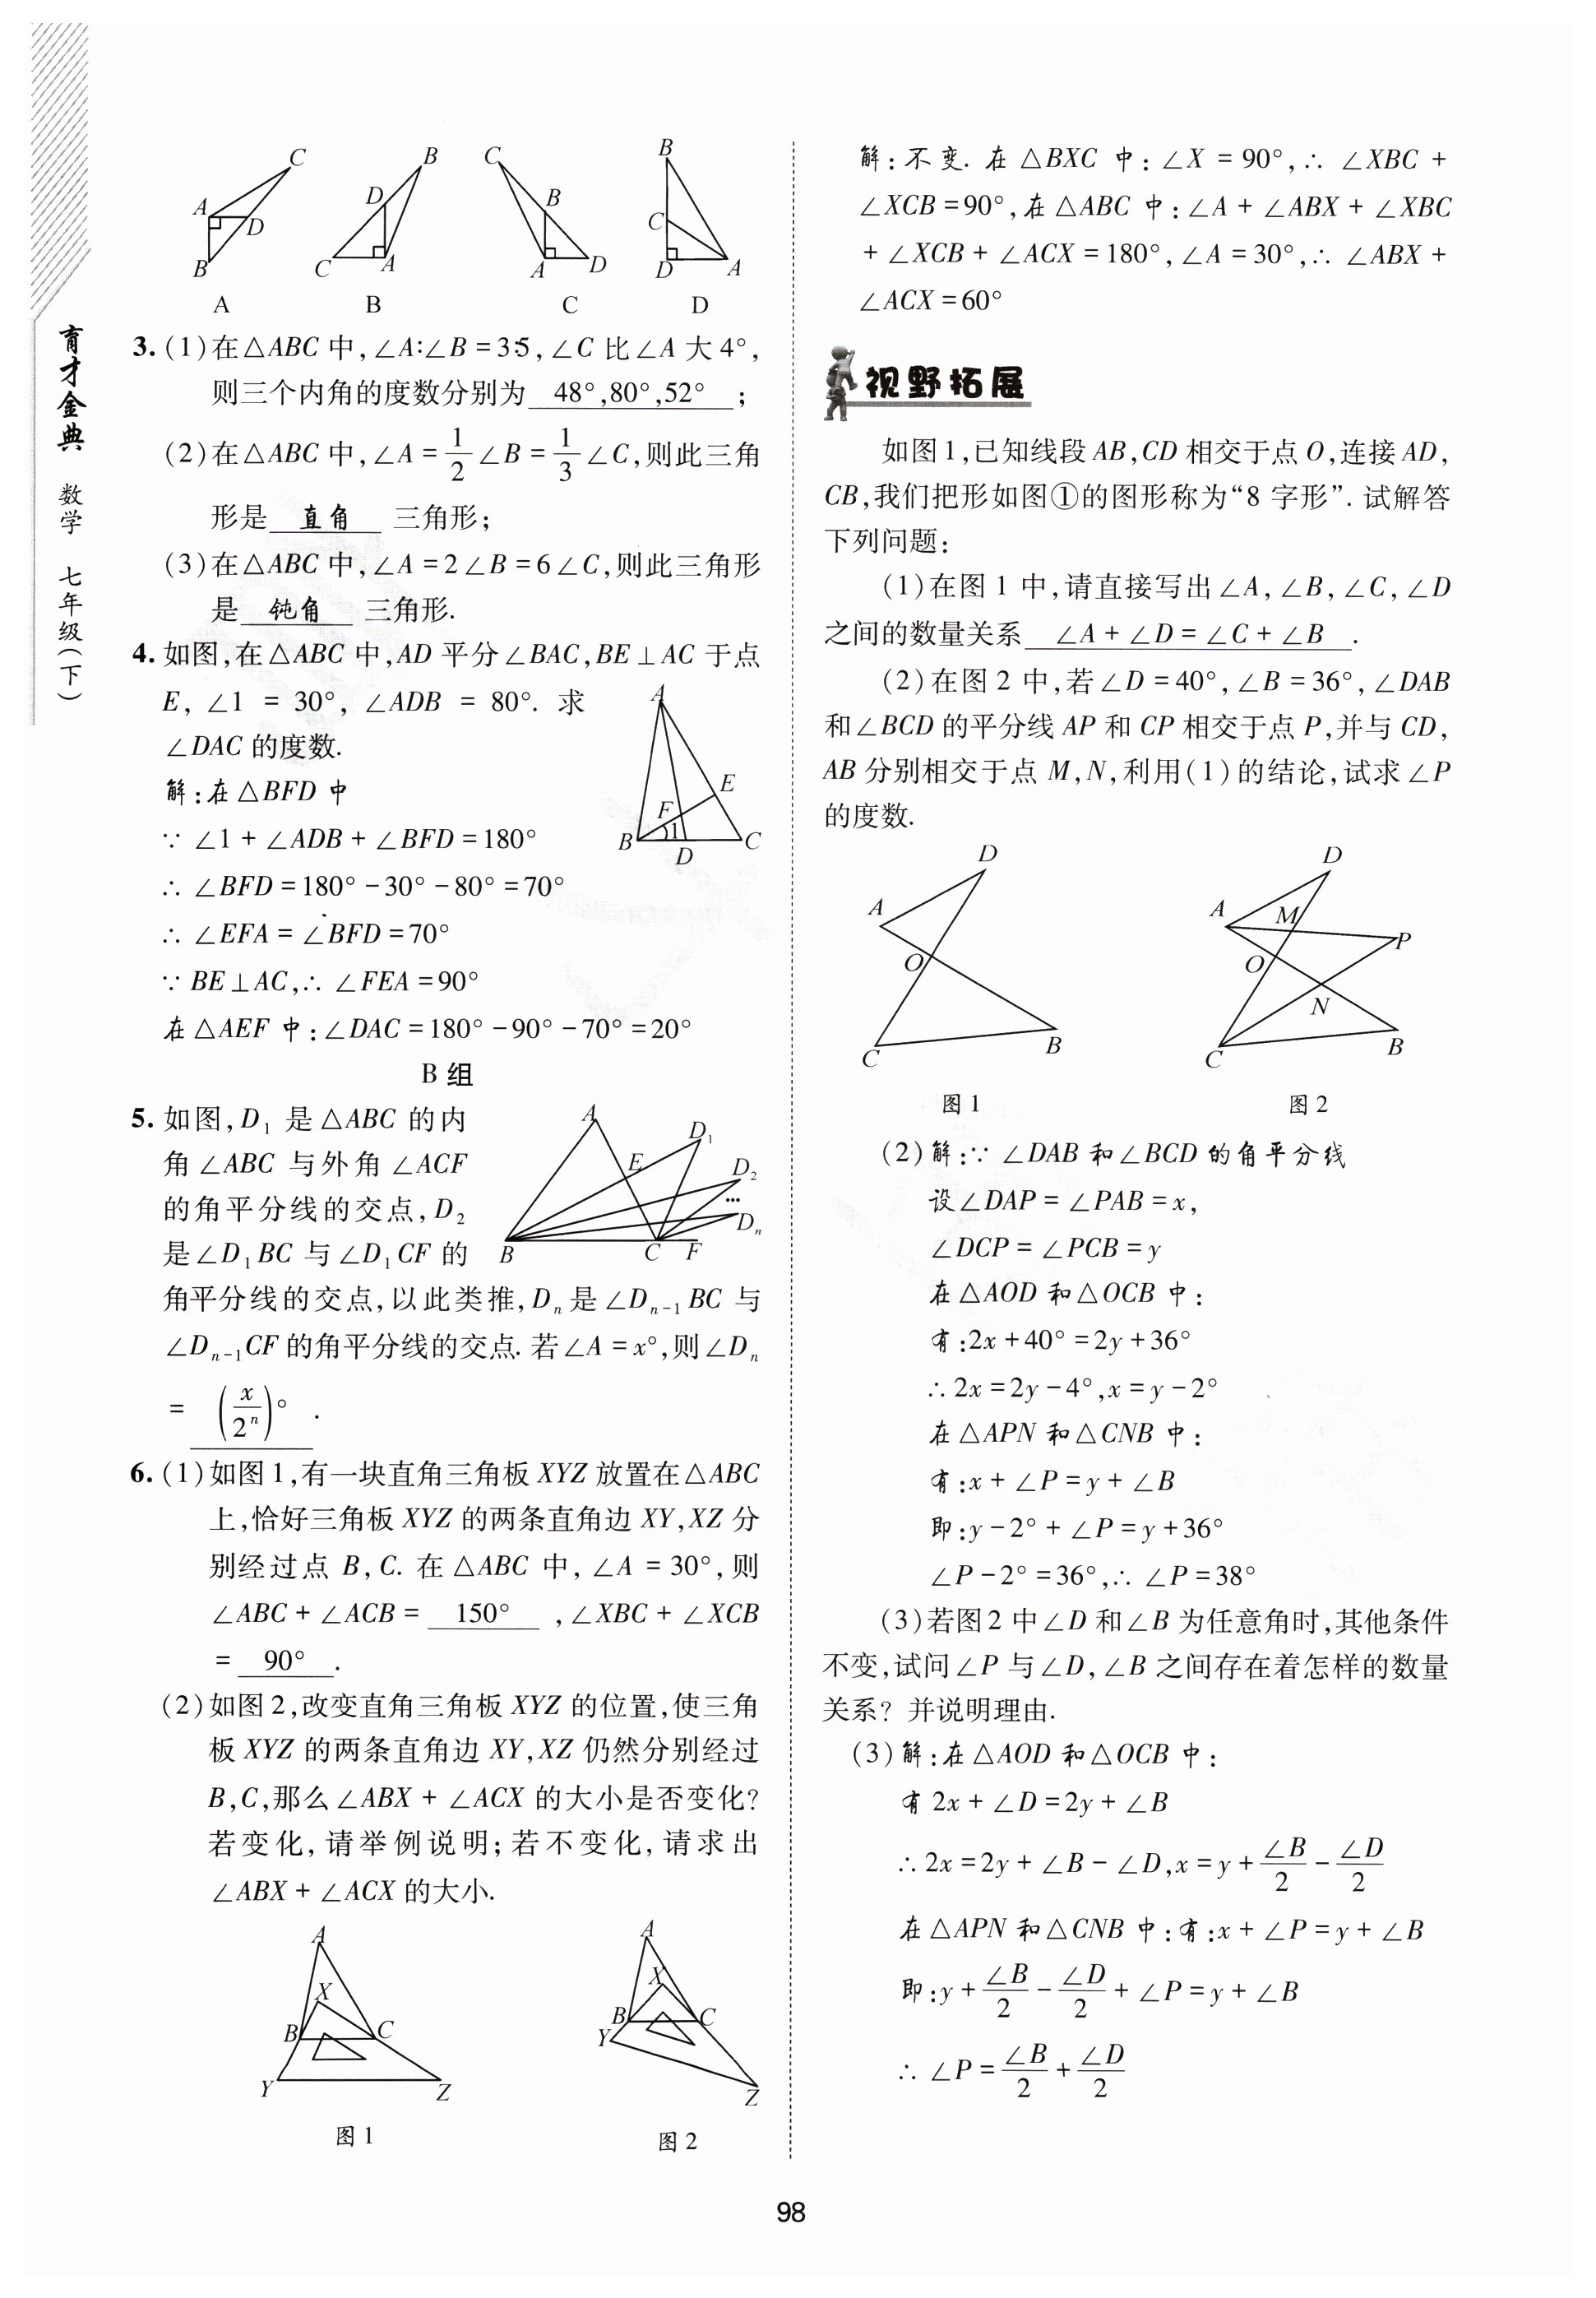 育才金典 数学 七年级(下)
C
A
D
B
A
B
D
C
A
B
C
B
A
D
C
B
C
D
A
D
3.(1)在△ABC 中,∠A∶∠B=3∶5,∠C 比∠A 大 4°,
则三个内角的度数分别为 48°,80°,52° ;
(2)在△ABC 中,∠A=1/2∠B=1/3∠C,则此三角
形是 直角 三角形;
(3)在△ABC 中,∠A=2∠B=6∠C,则此三角形
是 钝角 三角形.
4.如图,在△ABC 中,AD 平分∠BAC,BE⊥AC 于点
E, ∠1 = 30°, ∠ADB = 80°. 求
∠DAC 的度数.
A
E
F
1
B
D
C
解:在△BFD 中
∵ ∠1+∠ADB+∠BFD=180°
∴ ∠BFD=180°-30°-80°=70°
∴ ∠EFA=∠BFD=70°
∵ BE⊥AC,∴ ∠FEA=90°
在△AEF 中:∠DAC=180°-90°-70°=20°
B 组
5.如图,D₁ 是△ABC 的内
角∠ABC 与外角∠ACF
的角平分线的交点,D₂
是∠D₁BC 与∠D₁CF 的
角平分线的交点,以此类推,Dₙ 是∠Dₙ₋₁BC 与
∠Dₙ₋₁CF 的角平分线的交点.若∠A=x°,则∠Dₙ
= (x/2ⁿ)° .
A
D₁
E
D₂
...
Dₙ
B
C
F
6.(1)如图 1,有一块直角三角板 XYZ 放置在△ABC
上,恰好三角板 XYZ 的两条直角边 XY,XZ 分
别经过点 B,C. 在△ABC 中,∠A=30°,则
∠ABC+∠ACB= 150° ,∠XBC+∠XCB
= 90° .
(2)如图 2,改变直角三角板 XYZ 的位置,使三角
板 XYZ 的两条直角边 XY,XZ 仍然分别经过
B,C,那么∠ABX+∠ACX 的大小是否变化?
若变化,请举例说明;若不变化,请求出
∠ABX+∠ACX 的大小.
A
X
B
C
Y
Z
图 1
A
X
B
C
Y
Z
图 2
解:不变. 在△BXC 中:∠X=90°,∴ ∠XBC+
∠XCB=90°,在△ABC 中:∠A+∠ABX+∠XBC
+∠XCB+∠ACX=180°,∠A=30°,∴ ∠ABX+
∠ACX=60°
视野拓展
如图 1,已知线段 AB,CD 相交于点 O,连接 AD,
CB,我们把形如图①的图形称为“8 字形”. 试解答
下列问题:
(1)在图 1 中,请直接写出∠A,∠B,∠C,∠D
之间的数量关系 ∠A+∠D=∠C+∠B .
(2)在图 2 中,若∠D=40°,∠B=36°,∠DAB
和∠BCD 的平分线 AP 和 CP 相交于点 P,并与 CD,
AB 分别相交于点 M,N,利用(1)的结论,试求∠P
的度数.
D
A
O
C
B
图 1
D
A
M
P
O
N
C
B
图 2
(2)解:∵ ∠DAB 和∠BCD 的角平分线
设∠DAP=∠PAB=x,
∠DCP=∠PCB=y
在△AOD 和△OCB 中:
有:2x+40°=2y+36°
∴ 2x=2y-4°,x=y-2°
在△APN 和△CNB 中:
有:x+∠P=y+∠B
即:y-2°+∠P=y+36°
∠P-2°=36°,∴ ∠P=38°
(3)若图 2 中∠D 和∠B 为任意角时,其他条件
不变,试问∠P 与∠D,∠B 之间存在着怎样的数量
关系? 并说明理由.
(3)解:在△AOD 和△OCB 中:
有 2x+∠D=2y+∠B
∴ 2x=2y+∠B-∠D,x=y+∠B/2-∠D/2
在△APN 和△CNB 中:有:x+∠P=y+∠B
即:y+∠B/2-∠D/2+∠P=y+∠B
∴ ∠P=∠B/2+∠D/2
98